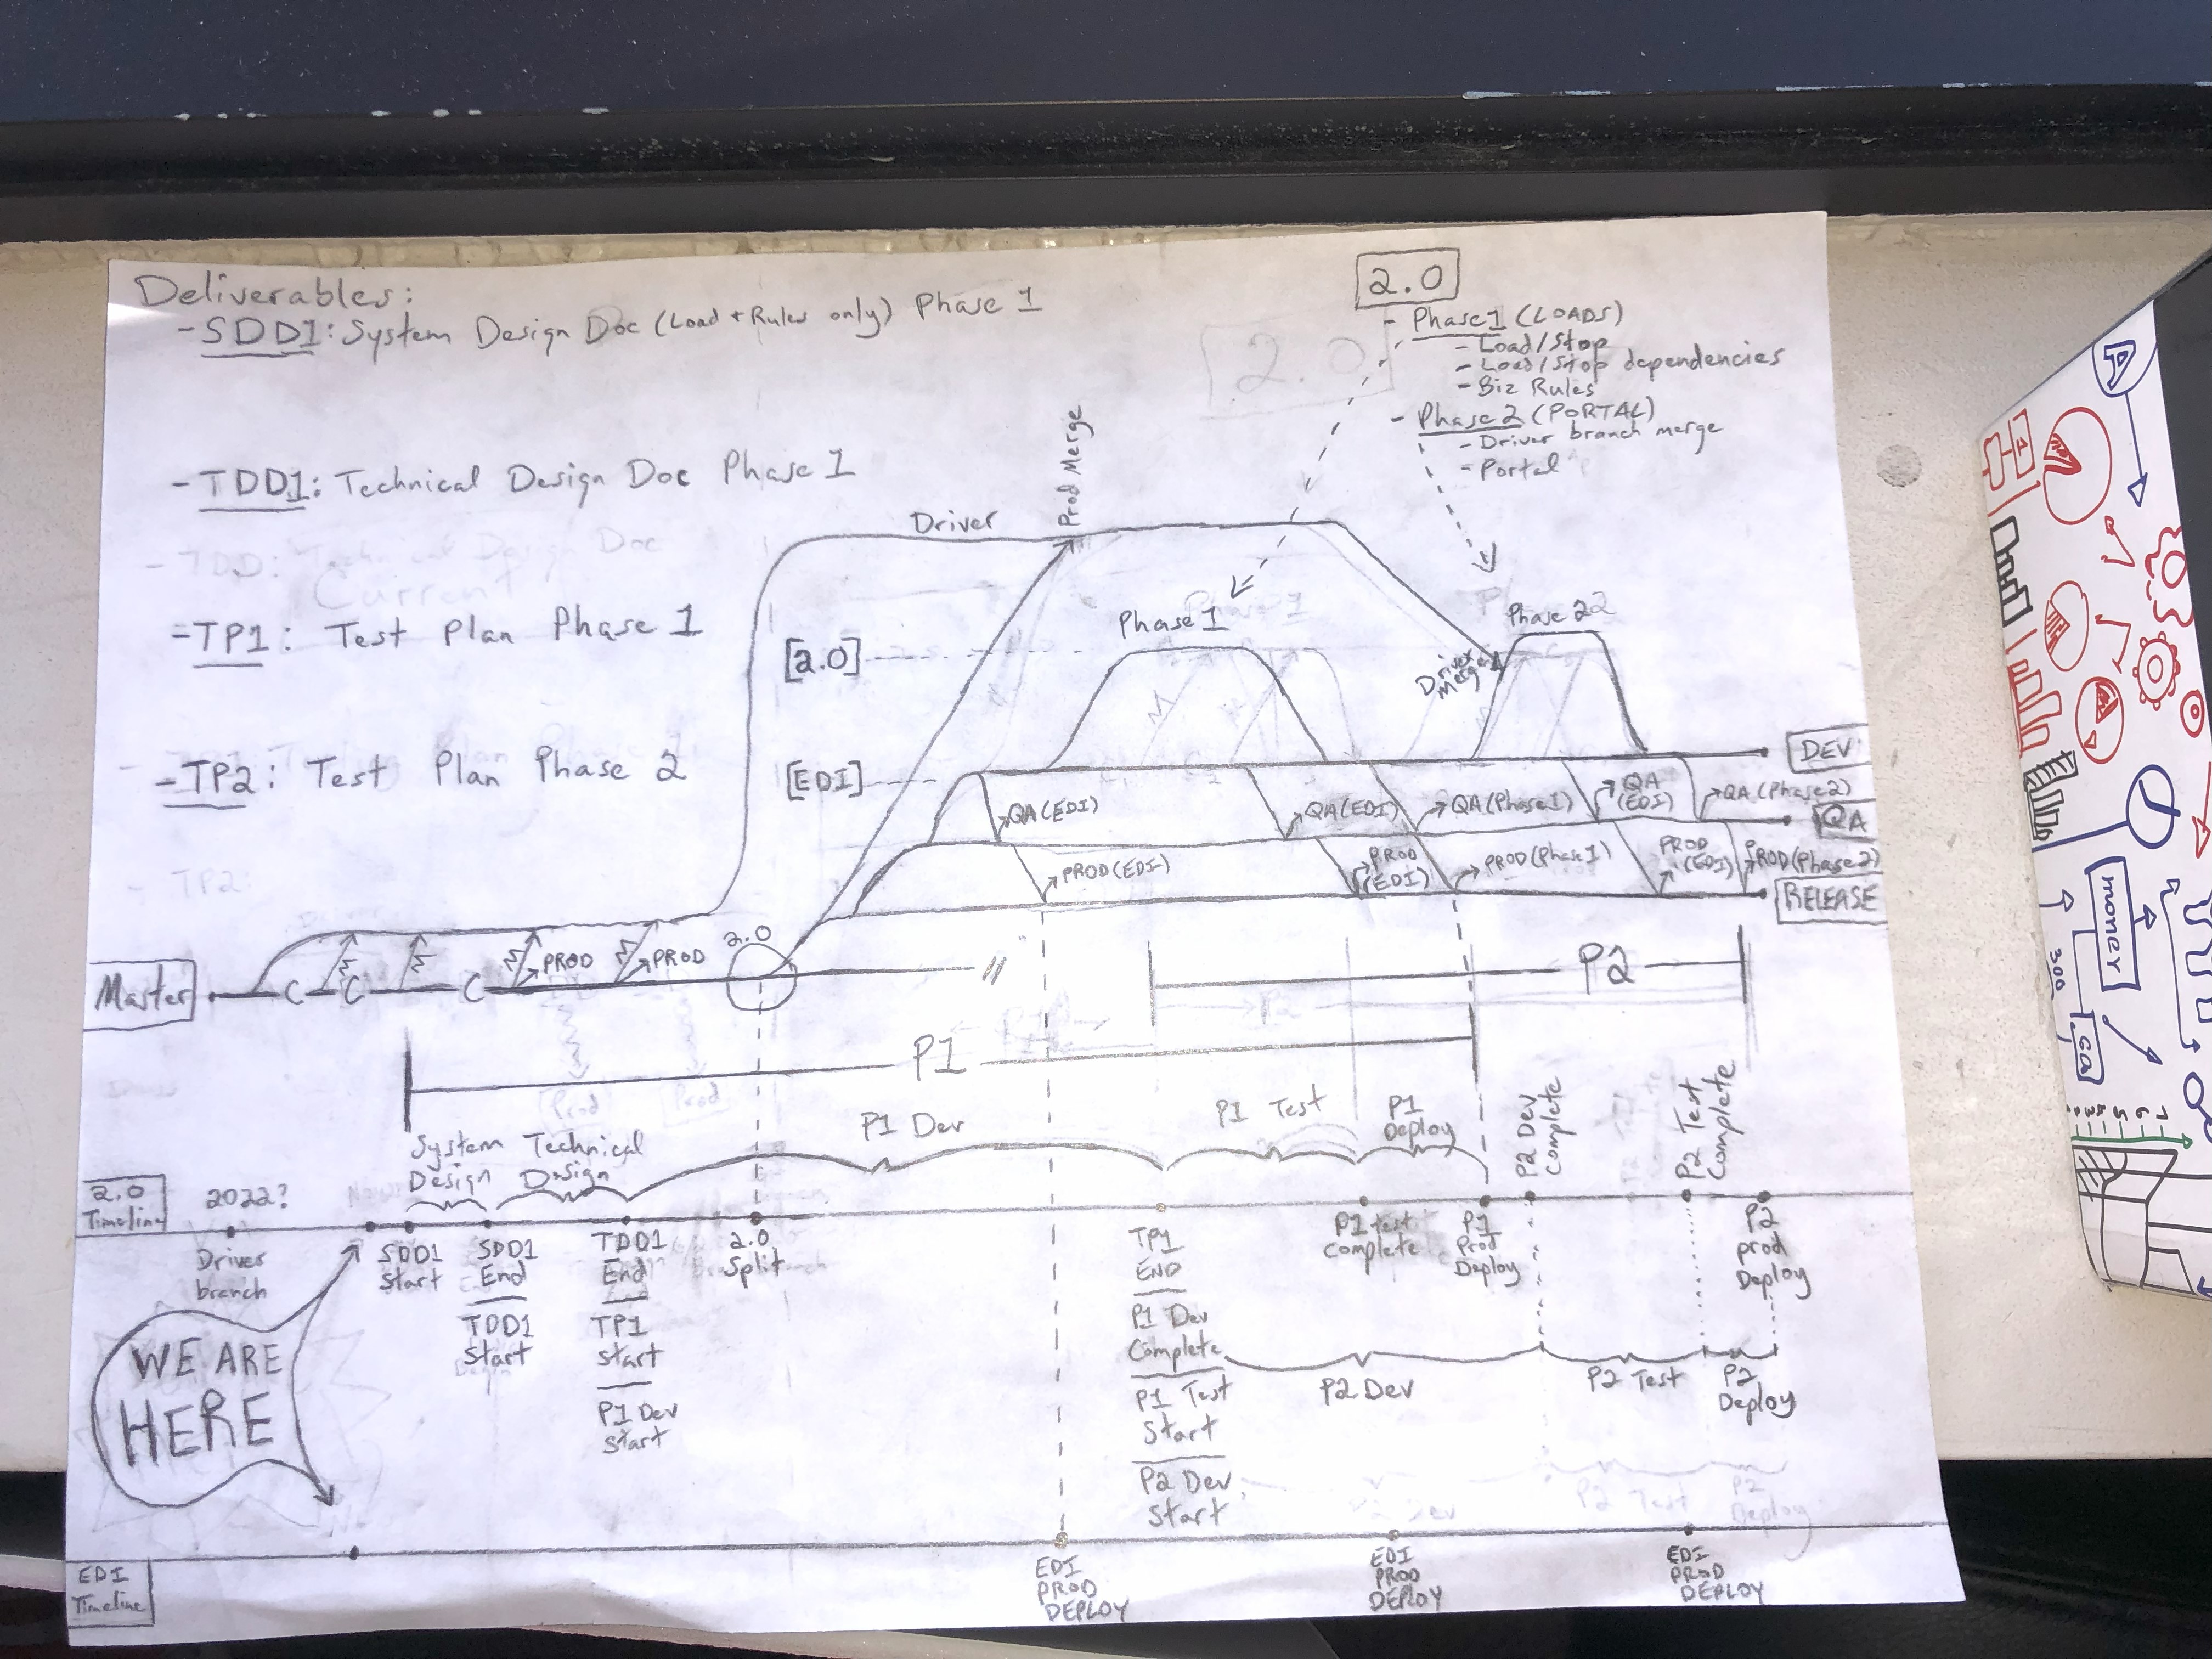 Deliverables:
- SDD1: System Design Doc (Load + Rules only) Phase 1
- TDD1: Technical Design Doc Phase 1
- TDD: Technical Design Doc
Current
- TP1: Test Plan Phase 1
- TP2: Test Plan Phase 2
- TP2:
2.0
2.0
- Phase 1 (LOADS)
- Load/Stop
- Load/Stop dependencies
- Biz Rules
- Phase 2 (PORTAL)
- Driver branch merge
- Portal
Prod Merge
Driver
Phase 1
Phase 2
[2.0]
Driver
Merge
[EDI]
DEV
QA (EDI)
QA (EDI)
QA (Phase 1)
QA
(EDI)
QA (Phase 2)
QA
PROD (EDI)
PROD
(EDI)
PROD (Phase 1)
PROD
(EDI)
PROD (Phase 2)
RELEASE
Master
C
C
C
PROD
PROD
2.0
//
P2
P1
Prod
Prod
System
Design
Technical
Design
P1 Dev
P1 Test
P1
Deploy
P2 Dev
Complete
P2 Test
Complete
2.0
Timeline
2022?
Driver
branch
SDD1
Start
SDD1
End
TDD1
Start
TDD1
End
TP1
Start
P1 Dev
Start
2.0
Split
TP1
END
P1 Dev
Complete
P1 Test
Start
P2 Dev
Start
P1 test
Complete
P1
Prod
Deploy
P2
prod
Deploy
P2 Dev
P2 Test
P2
Deploy
WE ARE
HERE
P2 Test
P2
Deploy
EDI
Timeline
EDI
PROD
DEPLOY
EDI
PROD
DEPLOY
EDI
PROD
DEPLOY
money
300